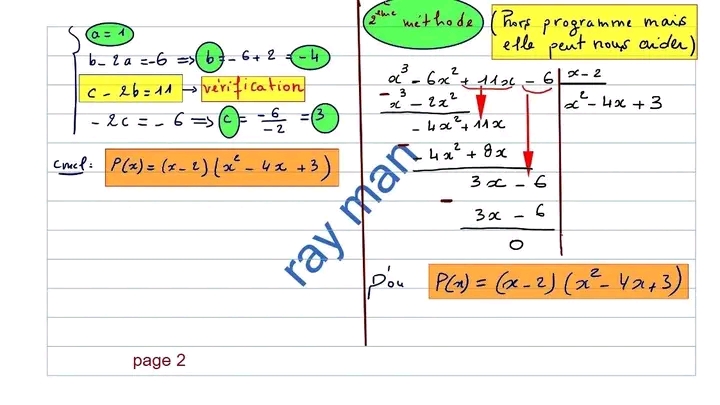 a = 1
b - 2a = -6 ⟹ b = -6 + 2 = -4
c - 2b = 11 → vérification
-2c = -6 ⟹ c = -6/-2 = 3
Concl: P(x) = (x-2)(x² - 4x + 3)
2ème méthode (Hors programme mais
elle peut nous aider)
x³ - 6x² + 11x - 6 | x-2
x³ - 2x² | x² - 4x + 3
- 4x² + 11x
- 4x² + 8x
3x - 6
3x - 6
0
D'où P(x) = (x-2)(x² - 4x + 3)
ray man
page 2